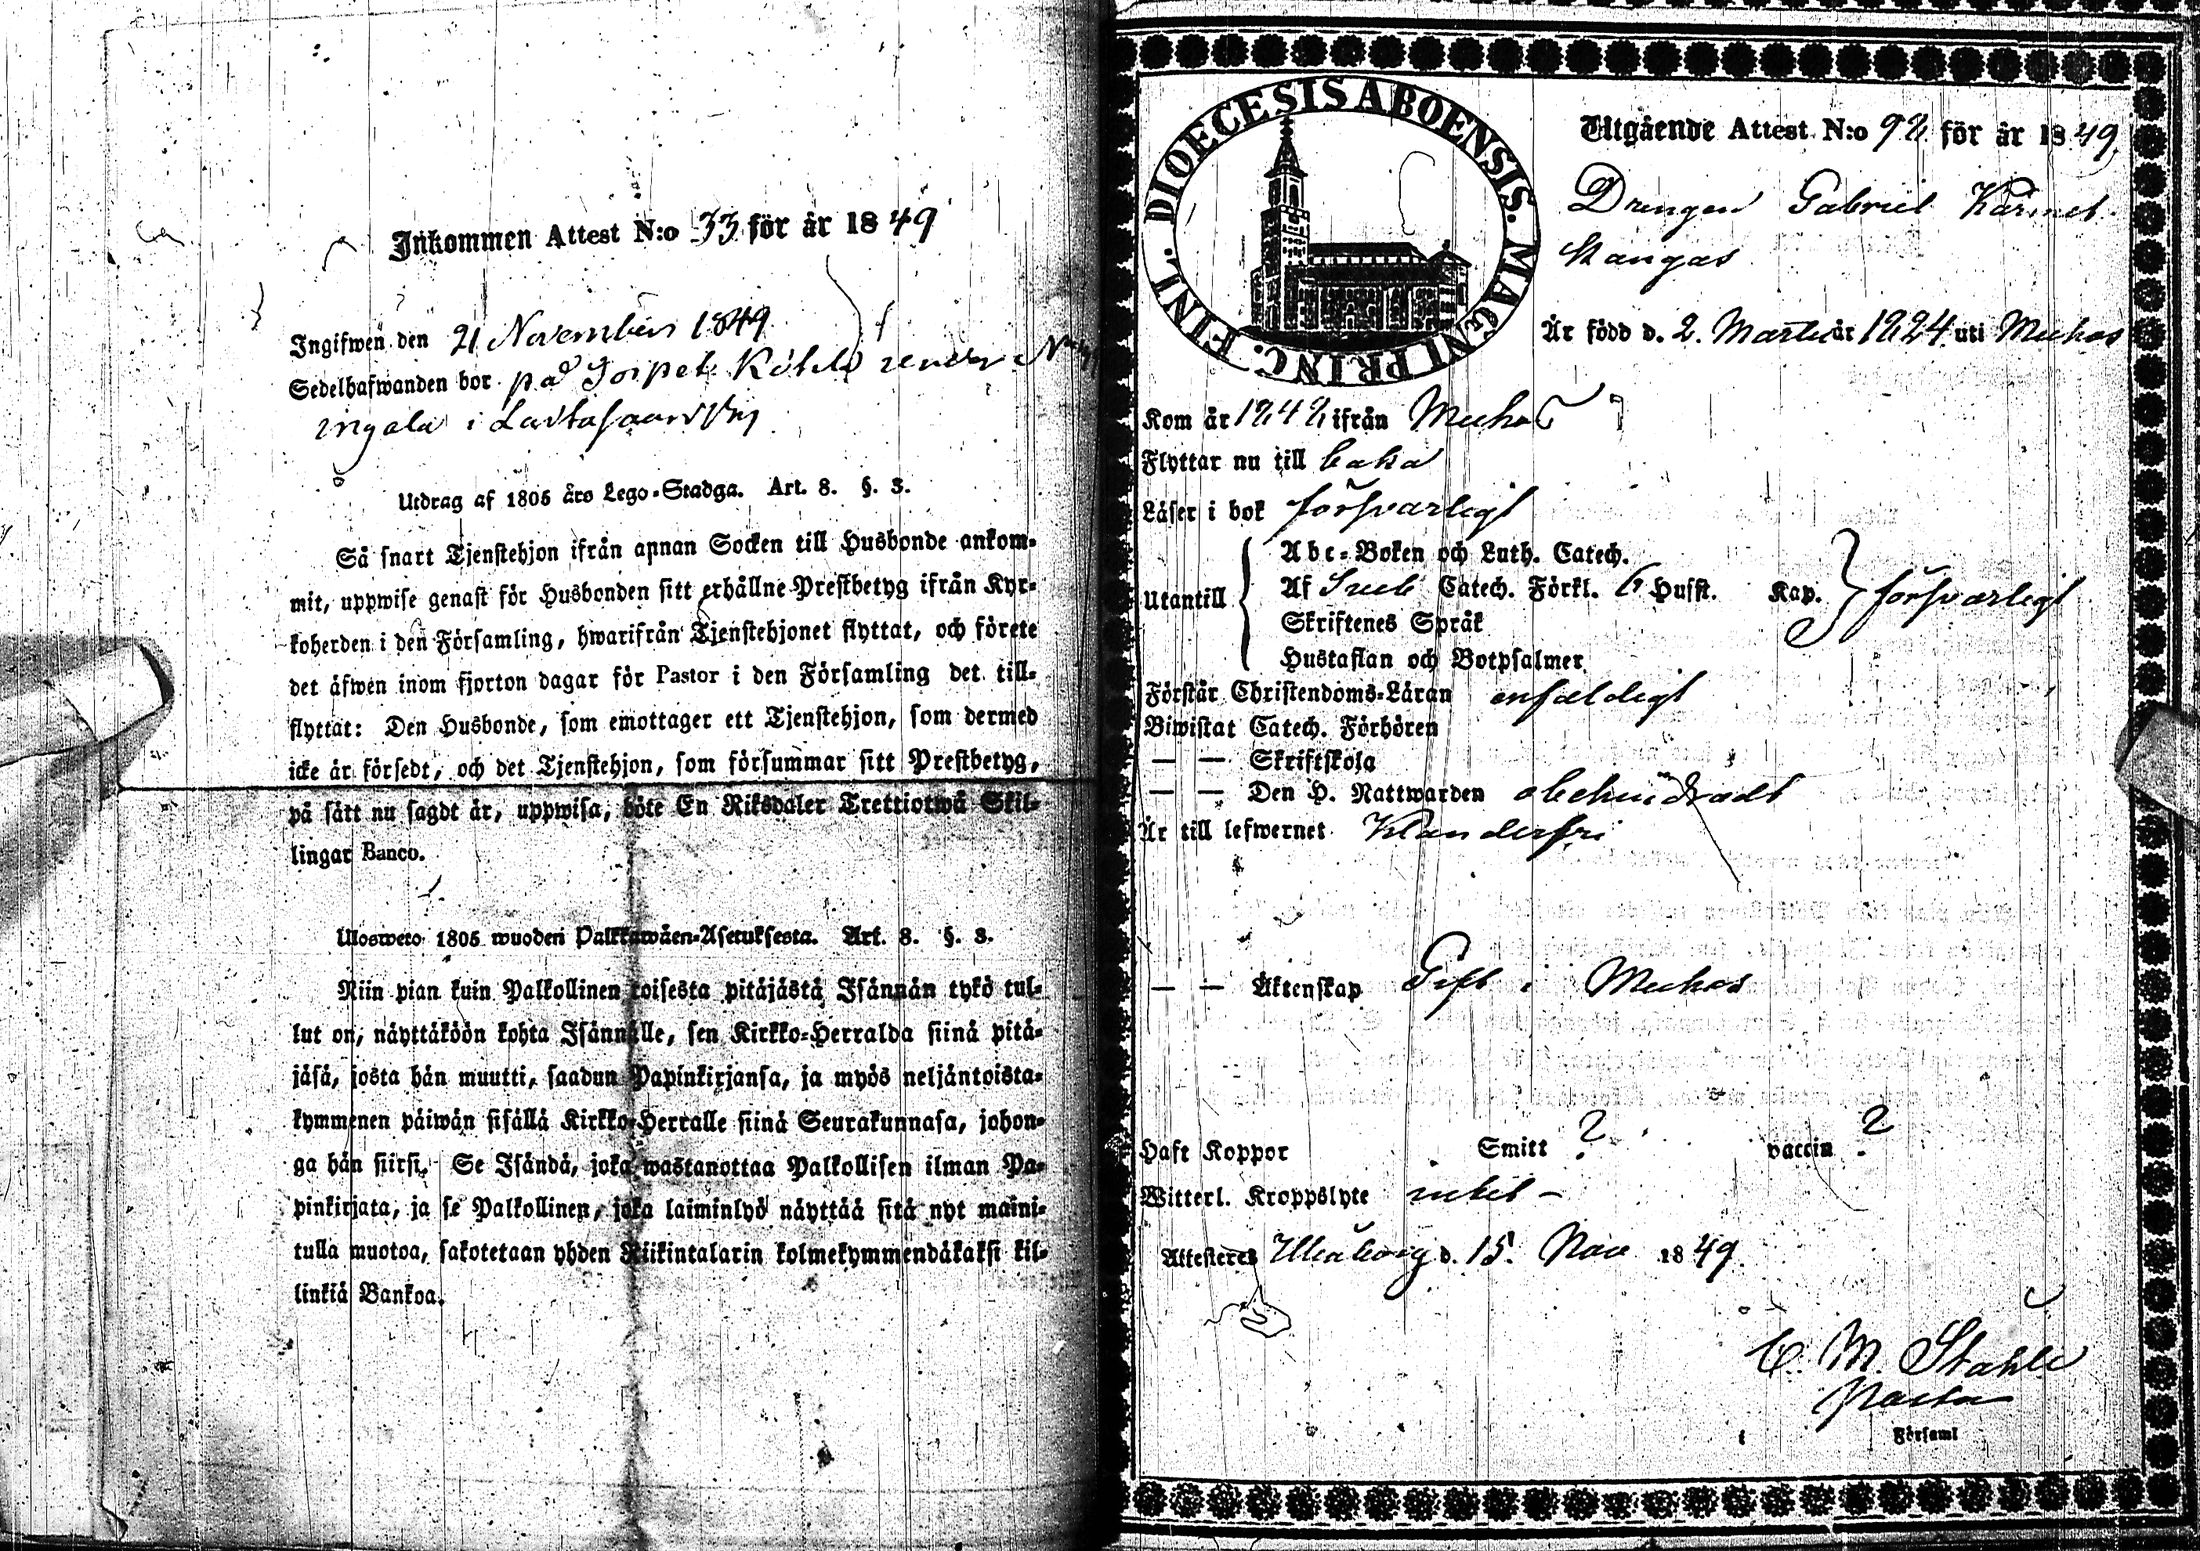 Inkommen Attest N:o 33 för år 1849
Ingifwen den 21 November 1849
Sedelhafwanden bor på Torpet
i
Utdrag af 1805 års Lego-Stadga. Art. 8. §. 3.
Så snart Tjenstehjon ifrån annan Socken till Husbonde ankom-
mit, uppwise genast för Husbonden sitt erhållne Prestbetyg ifrån Kyr-
koherden i den Församling, hwarifrån Tjenstehjonet flyttat, och förete
det äfwen inom fjorton dagar för Pastor i den Församling det till-
flyttat: Den Husbonde, som emottager ett Tjenstehjon, som dermed
icke är försedt, och det Tjenstehjon, som försummar sitt Prestbetyg,
på sätt nu sagdt är, uppwisa, böte En Riksdaler Trettiotwå Skil-
lingar Banco.
Ulosweto 1805 wuoden Palkkawäen-Asetuksesta. Art. 8. §. 3.
Niin pian kuin Palkollinen toisesta pitäjästä Isännän tykö tul-
lut on, näyttäköön kohta Isännälle, sen Kirkko-Herralda siinä pitä-
jäsä, josta hän muutti, saadun Papinkirjansa, ja myös neljäntoista-
kymmenen päiwän sisällä Kirkko-Herralle siinä Seurakunnasa, johon-
ga hän siirsi. Se Isändä, joka wastanottaa Palkollisen ilman Pa-
pinkirjata, ja se Palkollinen, joka laiminlyö näyttää sitä nyt maini-
tulla muotoa, sakotetaan yhden Riikintalarin kolmekymmendäkaksi kil-
linkiä Bankoa.
DIOECESIS ABOENSIS. MAGNI PRINC. FINL.
Utgående Attest N:o 92 för år 1849.
Drengen Gabriel
Kangas
Är född d. 2. Martii år 1824 uti Muhos
Kom år 1848 ifrån Muhos
Flyttar nu till baka
Läser i bok försvarligt
Utantill
Abc-Boken och Luth. Catech.
Af Sveb. Catech. Förkl. 6 Husst. Kap. försvarligt
Skriftenes Språk
Hustaflan och Botpsalmer
Förstår Christendoms-Läran enfaldigt
Biwistat Catech. Förhören
— — Skriftskola
— — Den H. Nattwarden obehindradt
Är till lefwernet Klanderfri
— — Äktenskap Gift i Muhos
Haft Koppor Smitt ? vaccin ?
Witterl. Kroppslyte intet –
Attesteres Uleåborg d. 15. Nov 1849.
C. M. Stahle
Pastor
i Församl